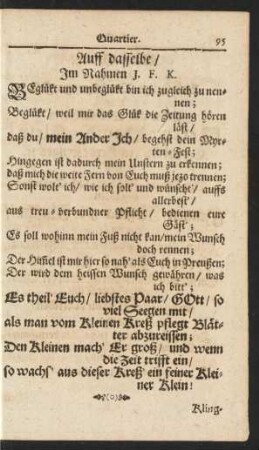 Quartier. 95
Auff dasselbe /
Im Nahmen J. F. K.
BEglükt und unbeglükt bin ich zugleich zu nen-
nen;
Beglükt / weil mir das Glük die Zeitung hören
läst /
daß du / mein Ander Ich / begehst dein Myr-
ten-Fest;
Hingegen ist dadurch mein Unstern zu erkennen;
daß mich die weite Fern von Euch muß jezo trennen;
Sonst wolt' ich / wie ich solt' und wünscht' / auffs
allerbest'
aus treu-verbundner Pflicht / bedienen eure
Gäst';
Es soll wohinn mein Fuß nicht kan / mein Wunsch
doch rennen;
Der Himel ist mir hier so nah' als Euch in Preußen;
Der wird dem heissen Wunsch gewähren / was
ich bitt';
Es theil' Euch / liebstes Paar / GOtt / so
viel Seegen mit /
als man vom Kleinen Kreß pflegt Blät-
ter abzureissen;
Den Kleinen mach' Er groß / und wenn
die Zeit trifft ein /
so wachs' aus dieser Kreß' ein feiner Klei-
ner Klein!
Kling-